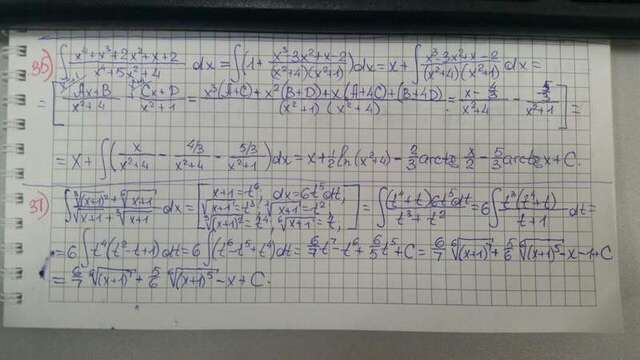 36) ∫ (x⁴+x³+2x²+x+2)/(x⁴+5x²+4) dx = ∫(1+ (x³-3x²+x-2)/((x²+4)(x²+1)))dx = x+ ∫ (x³-3x²+x-2)/((x²+4)(x²+1)) dx =
= [ (Ax+B)/(x²+4) + (Cx+D)/(x²+1) = (x³(A+C)+x²(B+D)+x(A+4C)+(B+4D))/((x²+1)(x²+4)) = (x-4/3)/(x²+4) - (5/3)/(x²+1) ] =
= x+ ∫( x/(x²+4) - (4/3)/(x²+4) - (5/3)/(x²+1) )dx = x+ 1/2 ln(x²+4) - 2/3 arctg x/2 - 5/3 arctg x+C.
37) ∫ (∛(x+1)²+⁶√(x+1))/(√(x+1)+∛(x+1)) dx = [ x+1=t⁶, dx=6t⁵dt, √(x+1)=t³, ∛(x+1)=t², ∛(x+1)²=t⁴, ⁶√(x+1)=t, ] = ∫ (t⁴+t)6t⁵dt/(t³+t²) = 6∫ t³(t⁴+t)/(t+1) dt=
=6 ∫ t⁴(t²-t+1)dt = 6 ∫(t⁶-t⁵+t⁴)dt = 6/7 t⁷-t⁶+ 6/5 t⁵+C = 6/7 ⁶√(x+1)⁷+ 5/6 ⁶√(x+1)⁵-x-1+C
= 6/7 ⁶√(x+1)⁷+ 5/6 ⁶√(x+1)⁵-x+C.